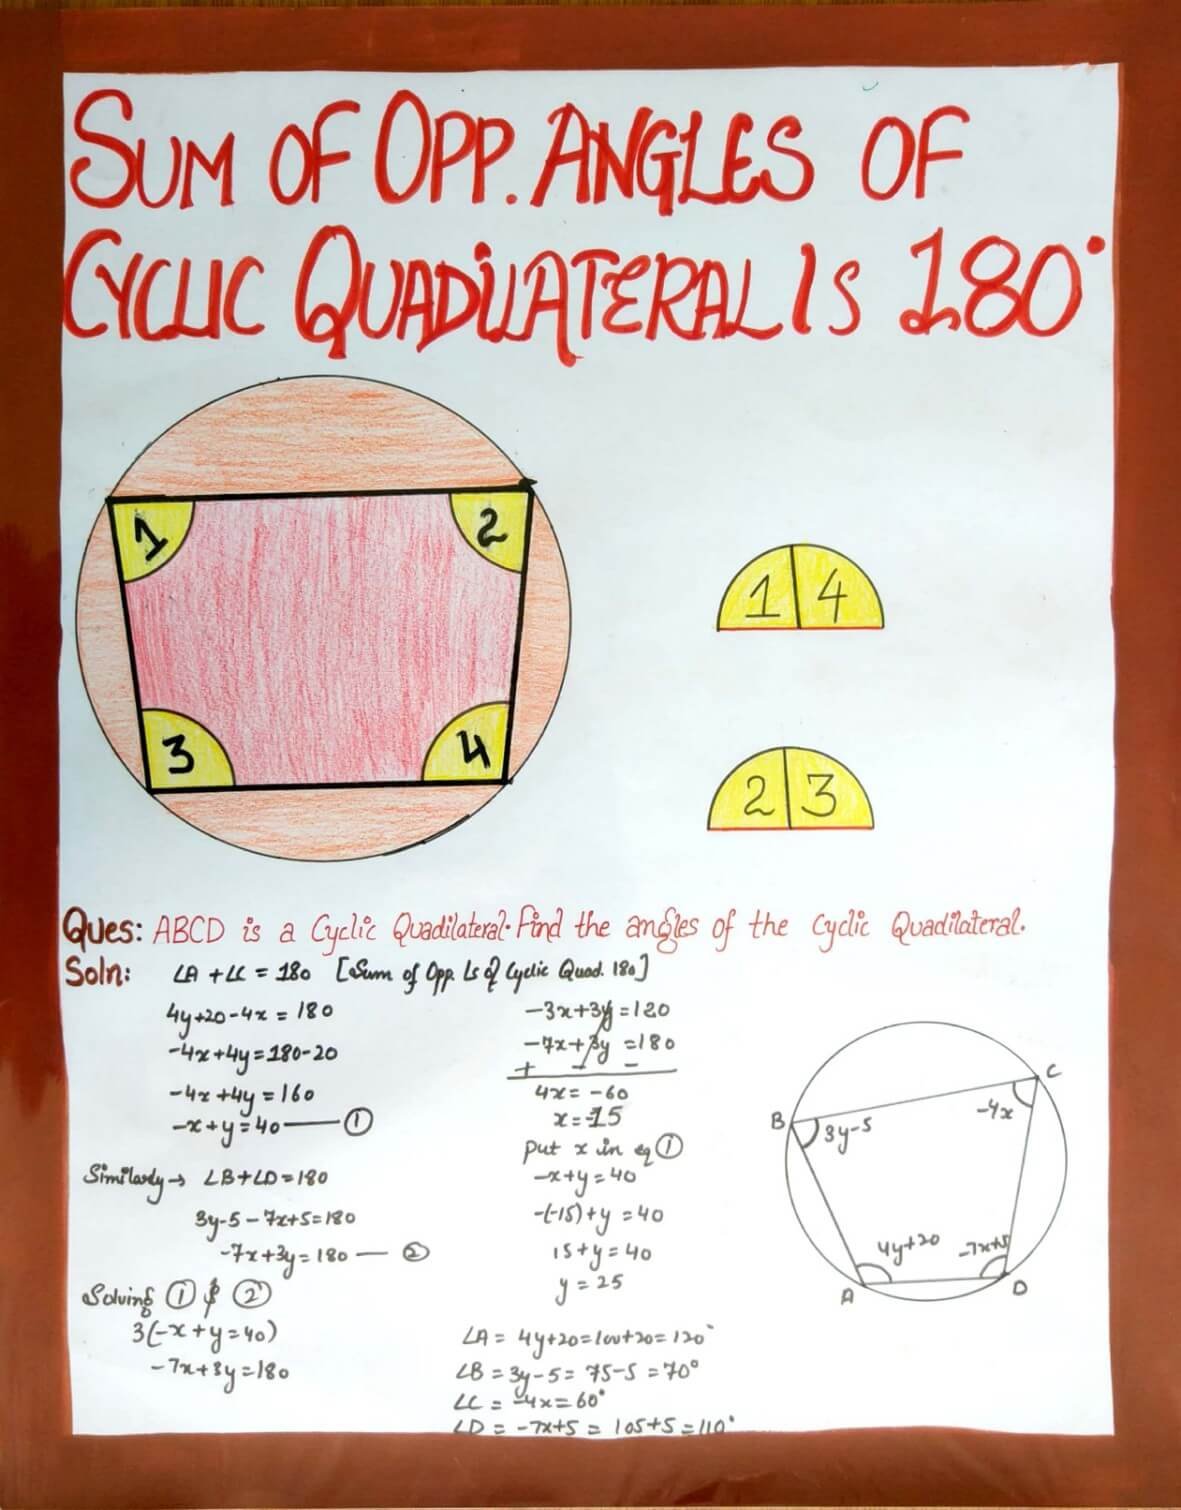 SUM OF OPP. ANGLES OF
CYCLIC QUADILATERAL IS 180°
1
2
3
4
1 4
2 3
Ques: ABCD is a Cyclic Quadilateral. Find the angles of the Cyclic Quadilateral.
Soln: ∠A + ∠C = 180 [Sum of Opp. ∠s of Cyclic Quad. 180]
4y+20-4x = 180
-4x+4y=180-20
-4x+4y=160
-x+y=40 — ①
Similarly → ∠B+∠D=180
3y-5-7x+5=180
-7x+3y=180 — ②
Solving ① & ②
3(-x+y=40)
-7x+3y=180
-3x+3y=120
-7x+3y =180
+ - -
4x = -60
x = -15
put x in eq ①
-x+y=40
-(-15)+y =40
15+y=40
y = 25
∠A = 4y+20=100+20=120°
∠B = 3y-5= 75-5 =70°
∠C = -4x=60°
∠D = -7x+5 = 105+5=110°
C
-4x
B
3y-5
4y+20
-7x+5
A
D